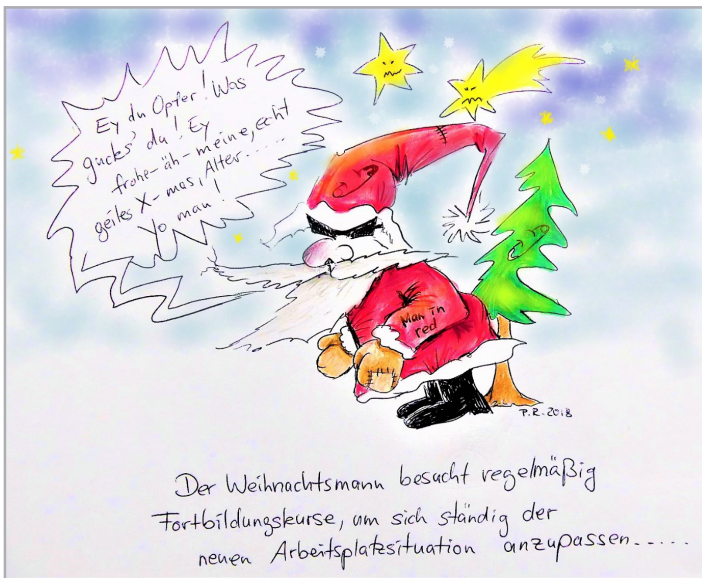 Ey du Opfer! Was
gucks' du! Ey
frohe-äh-meine, echt
geiles X-mas, Alter......
Yo man!
Man in
red
P.R. 2018
Der Weihnachtsmann besucht regelmäßig
Fortbildungskurse, um sich ständig der
neuen Arbeitsplatzsituation anzupassen.....